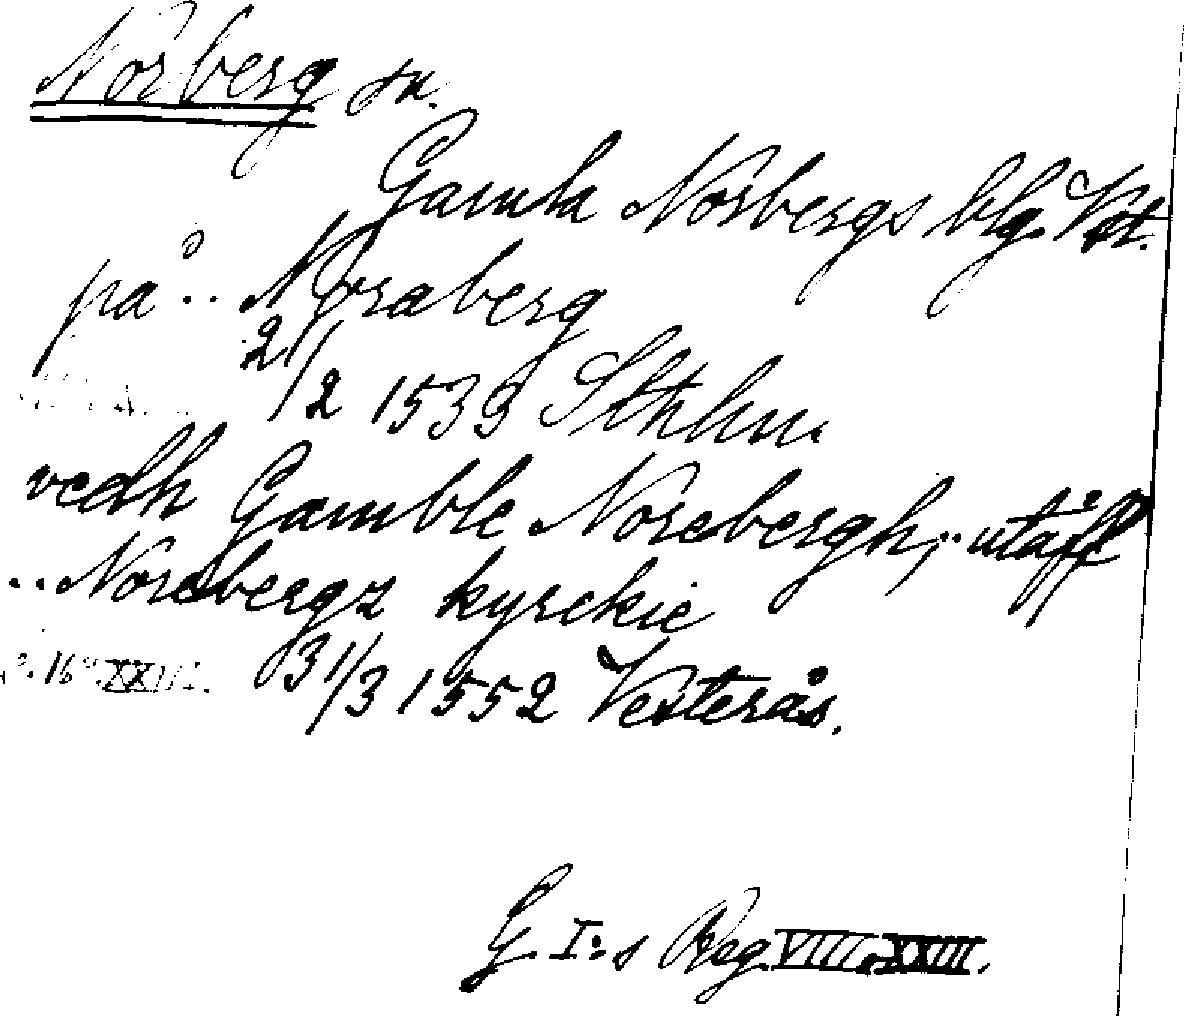 Norberg sn.
Gamla Norbergs blg. Vst.
på .. Noraberg
21/2 1539 Sthlm.
vedh Gamble Norebergh; .. utåff
.. Norebergz kyrckie
31/3 1552 Vesterås.
G. I:s Reg. VIII, XXIII.